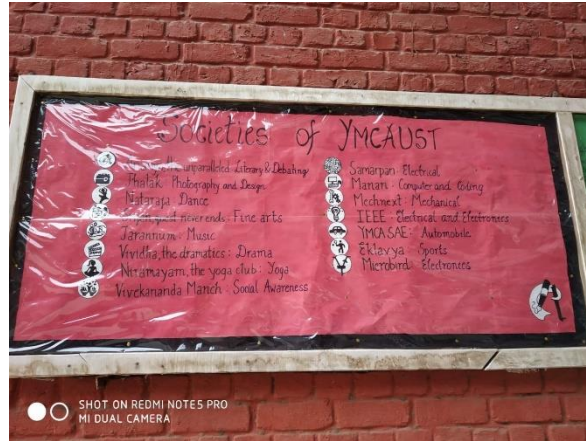 Societies of YMCAUST
the unparalleled Literary & Debating
Phatak: Photography and Design
Nataraja: Dance
never ends: Fine arts
Tarannum: Music
Vividha, the dramatics: Drama
Niramayam, the yoga club: Yoga
Vivekananda Manch: Social Awareness
Samarpan: Electrical
Manan: Computer and Coding
Mechnext: Mechanical
IEEE: Electrical and Electronics
YMCA SAE: Automobile
Eklavya: Sports
Microbird: Electronics
SHOT ON REDMI NOTE 5 PRO
MI DUAL CAMERA